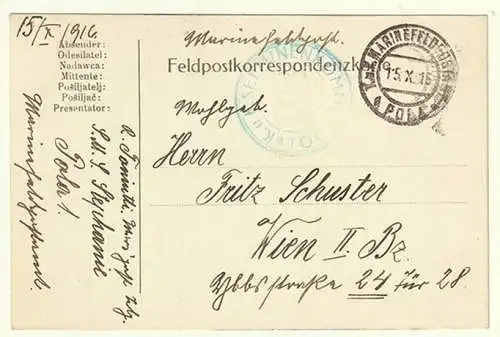 15/X 1916
Marinefeldpost.
Absender:
Odesilatel:
Nadawca:
Mittente:
Pošiljatelj:
Pošiljač:
Presentator:
Feldpostkorrespondenzkarte
K.u.K. MARINEFELDPOSTAMT
15.X.16
a POLA a
Wohlgeb.
Herrn
Fritz Schuster
Wien II. Bz.
Ybbsstraße 24 Tür 28.
S.M.S. Stephanie
Pola 1.
Marinefeldpostamt.